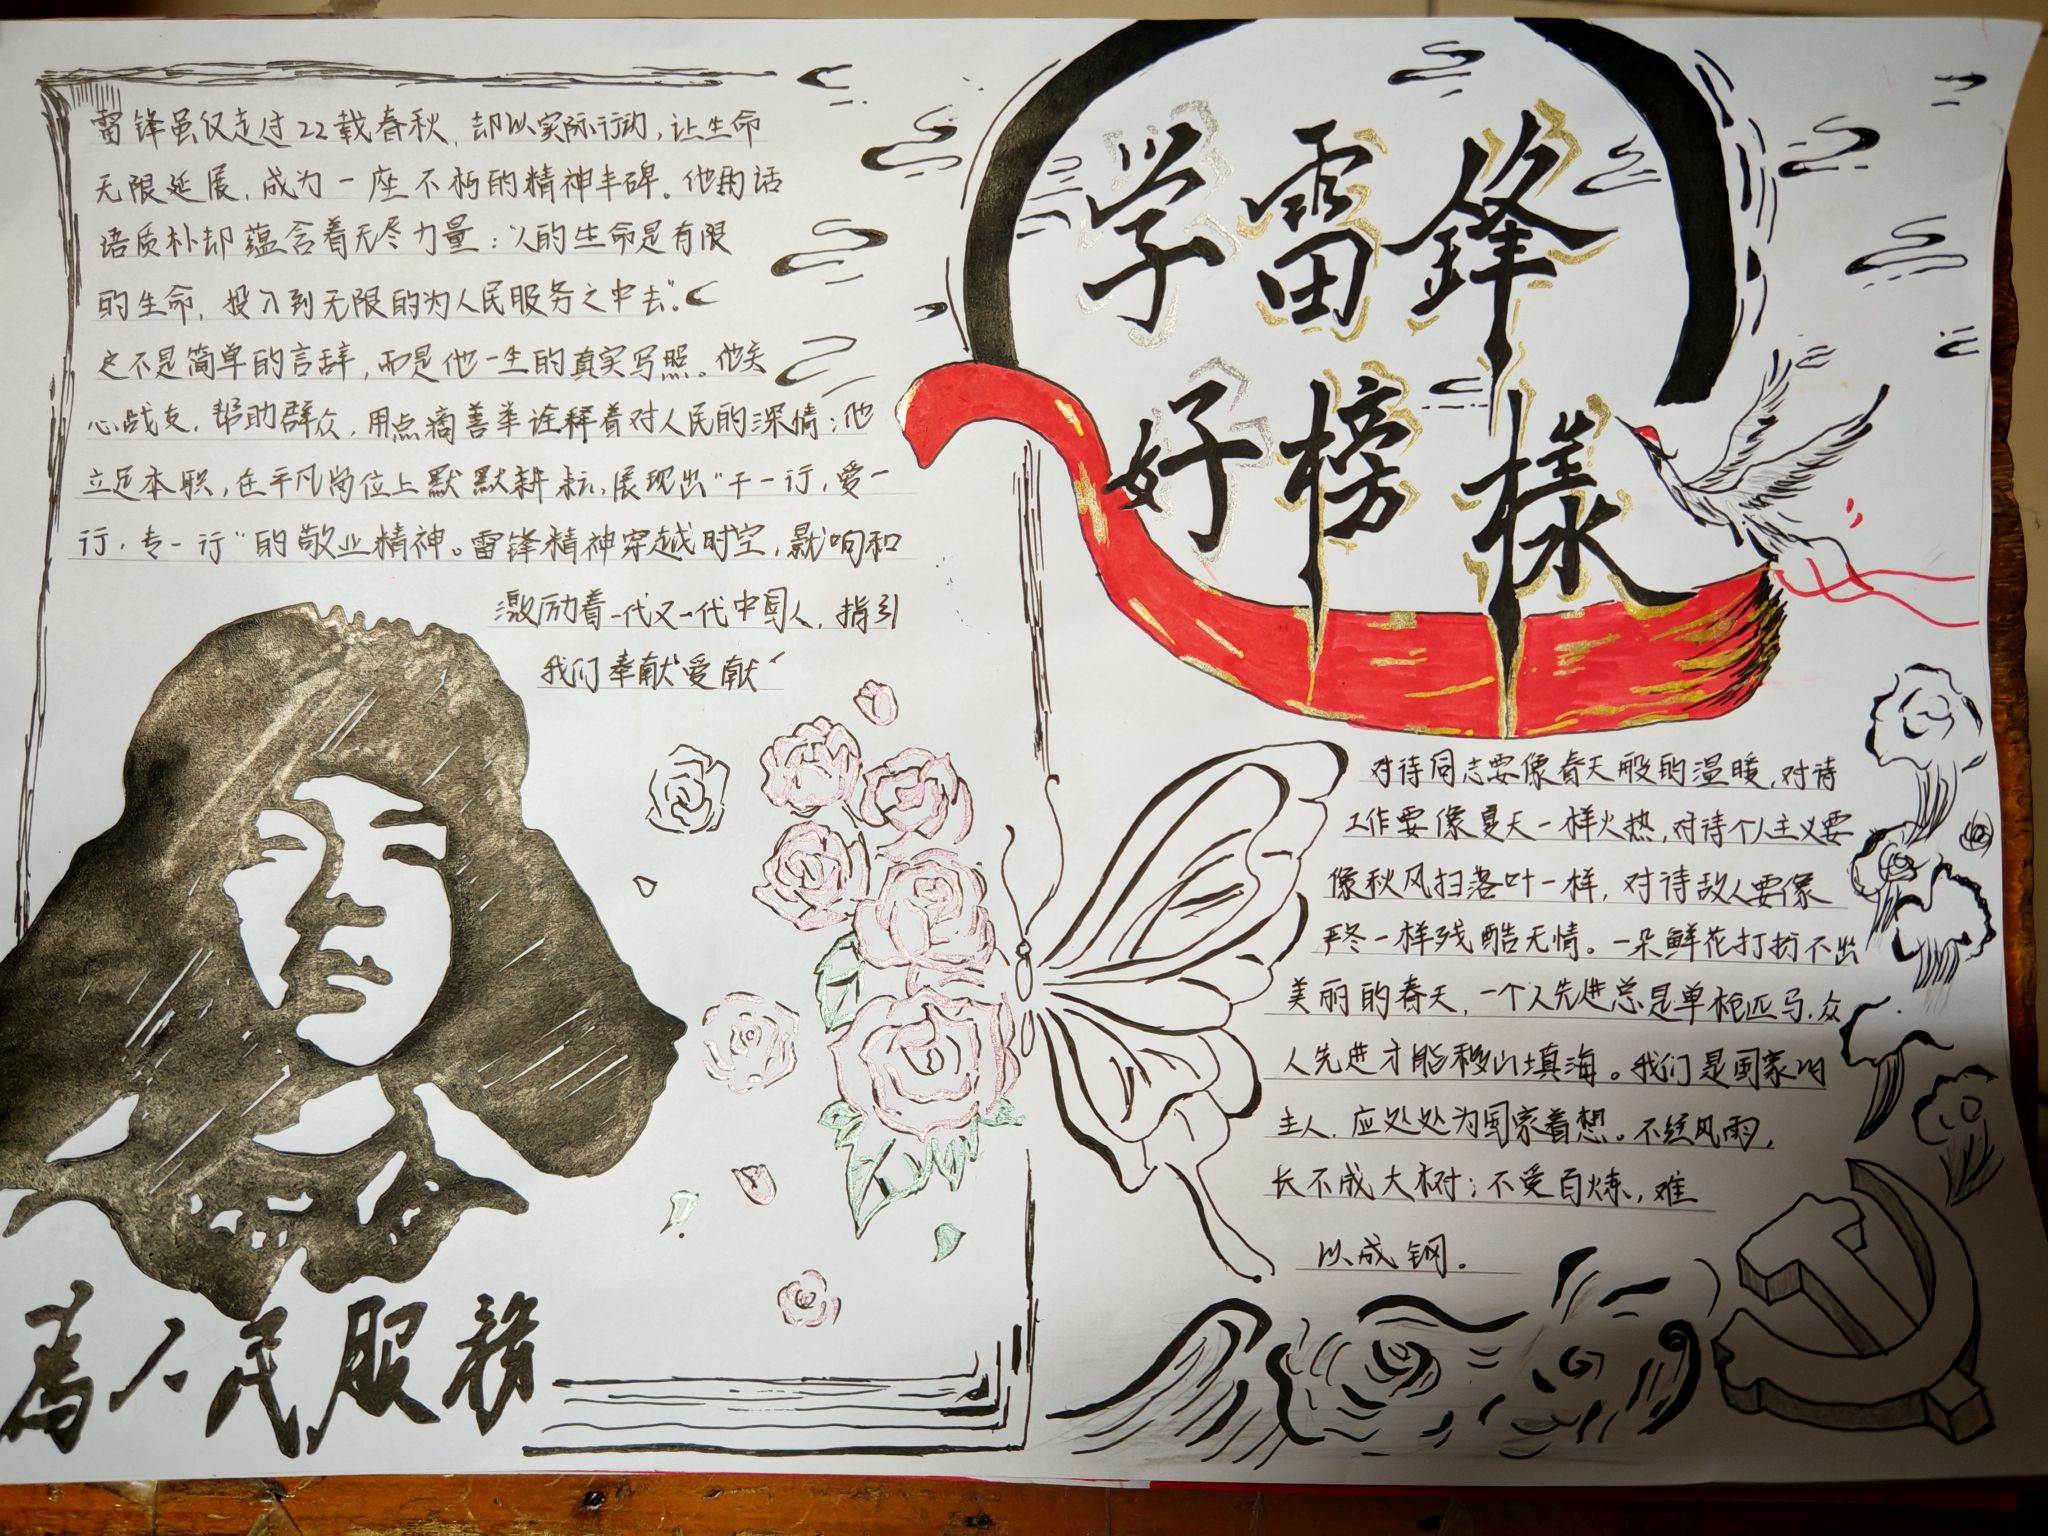 学雷锋
好榜樣
雷锋虽仅走过22载春秋,却以实际行动,让生命
无限延展,成为一座不朽的精神丰碑。他的话
语质朴却蕴含着无尽力量:"人的生命是有限
的生命,投入到无限的为人民服务之中去"。
这不是简单的言辞,而是他一生的真实写照。他关
心战友,帮助群众,用点滴善举诠释着对人民的深情;他
立足本职,在平凡岗位上默默耕耘,展现出"干一行,爱一
行,专一行"的敬业精神。雷锋精神穿越时空,影响和
激励着一代又一代中国人,指引
我们奉献"爱献"
为人民服務
对待同志要像春天般的温暖,对待
工作要像夏天一样火热,对待个人主义要
像秋风扫落叶一样,对待敌人要像
严冬一样残酷无情。一朵鲜花打扮不出
美丽的春天,一个人先进总是单枪匹马,众
人先进才能移山填海。我们是国家的
主人,应处处为国家着想。不经风雨,
长不成大树;不受百炼,难
以成钢。